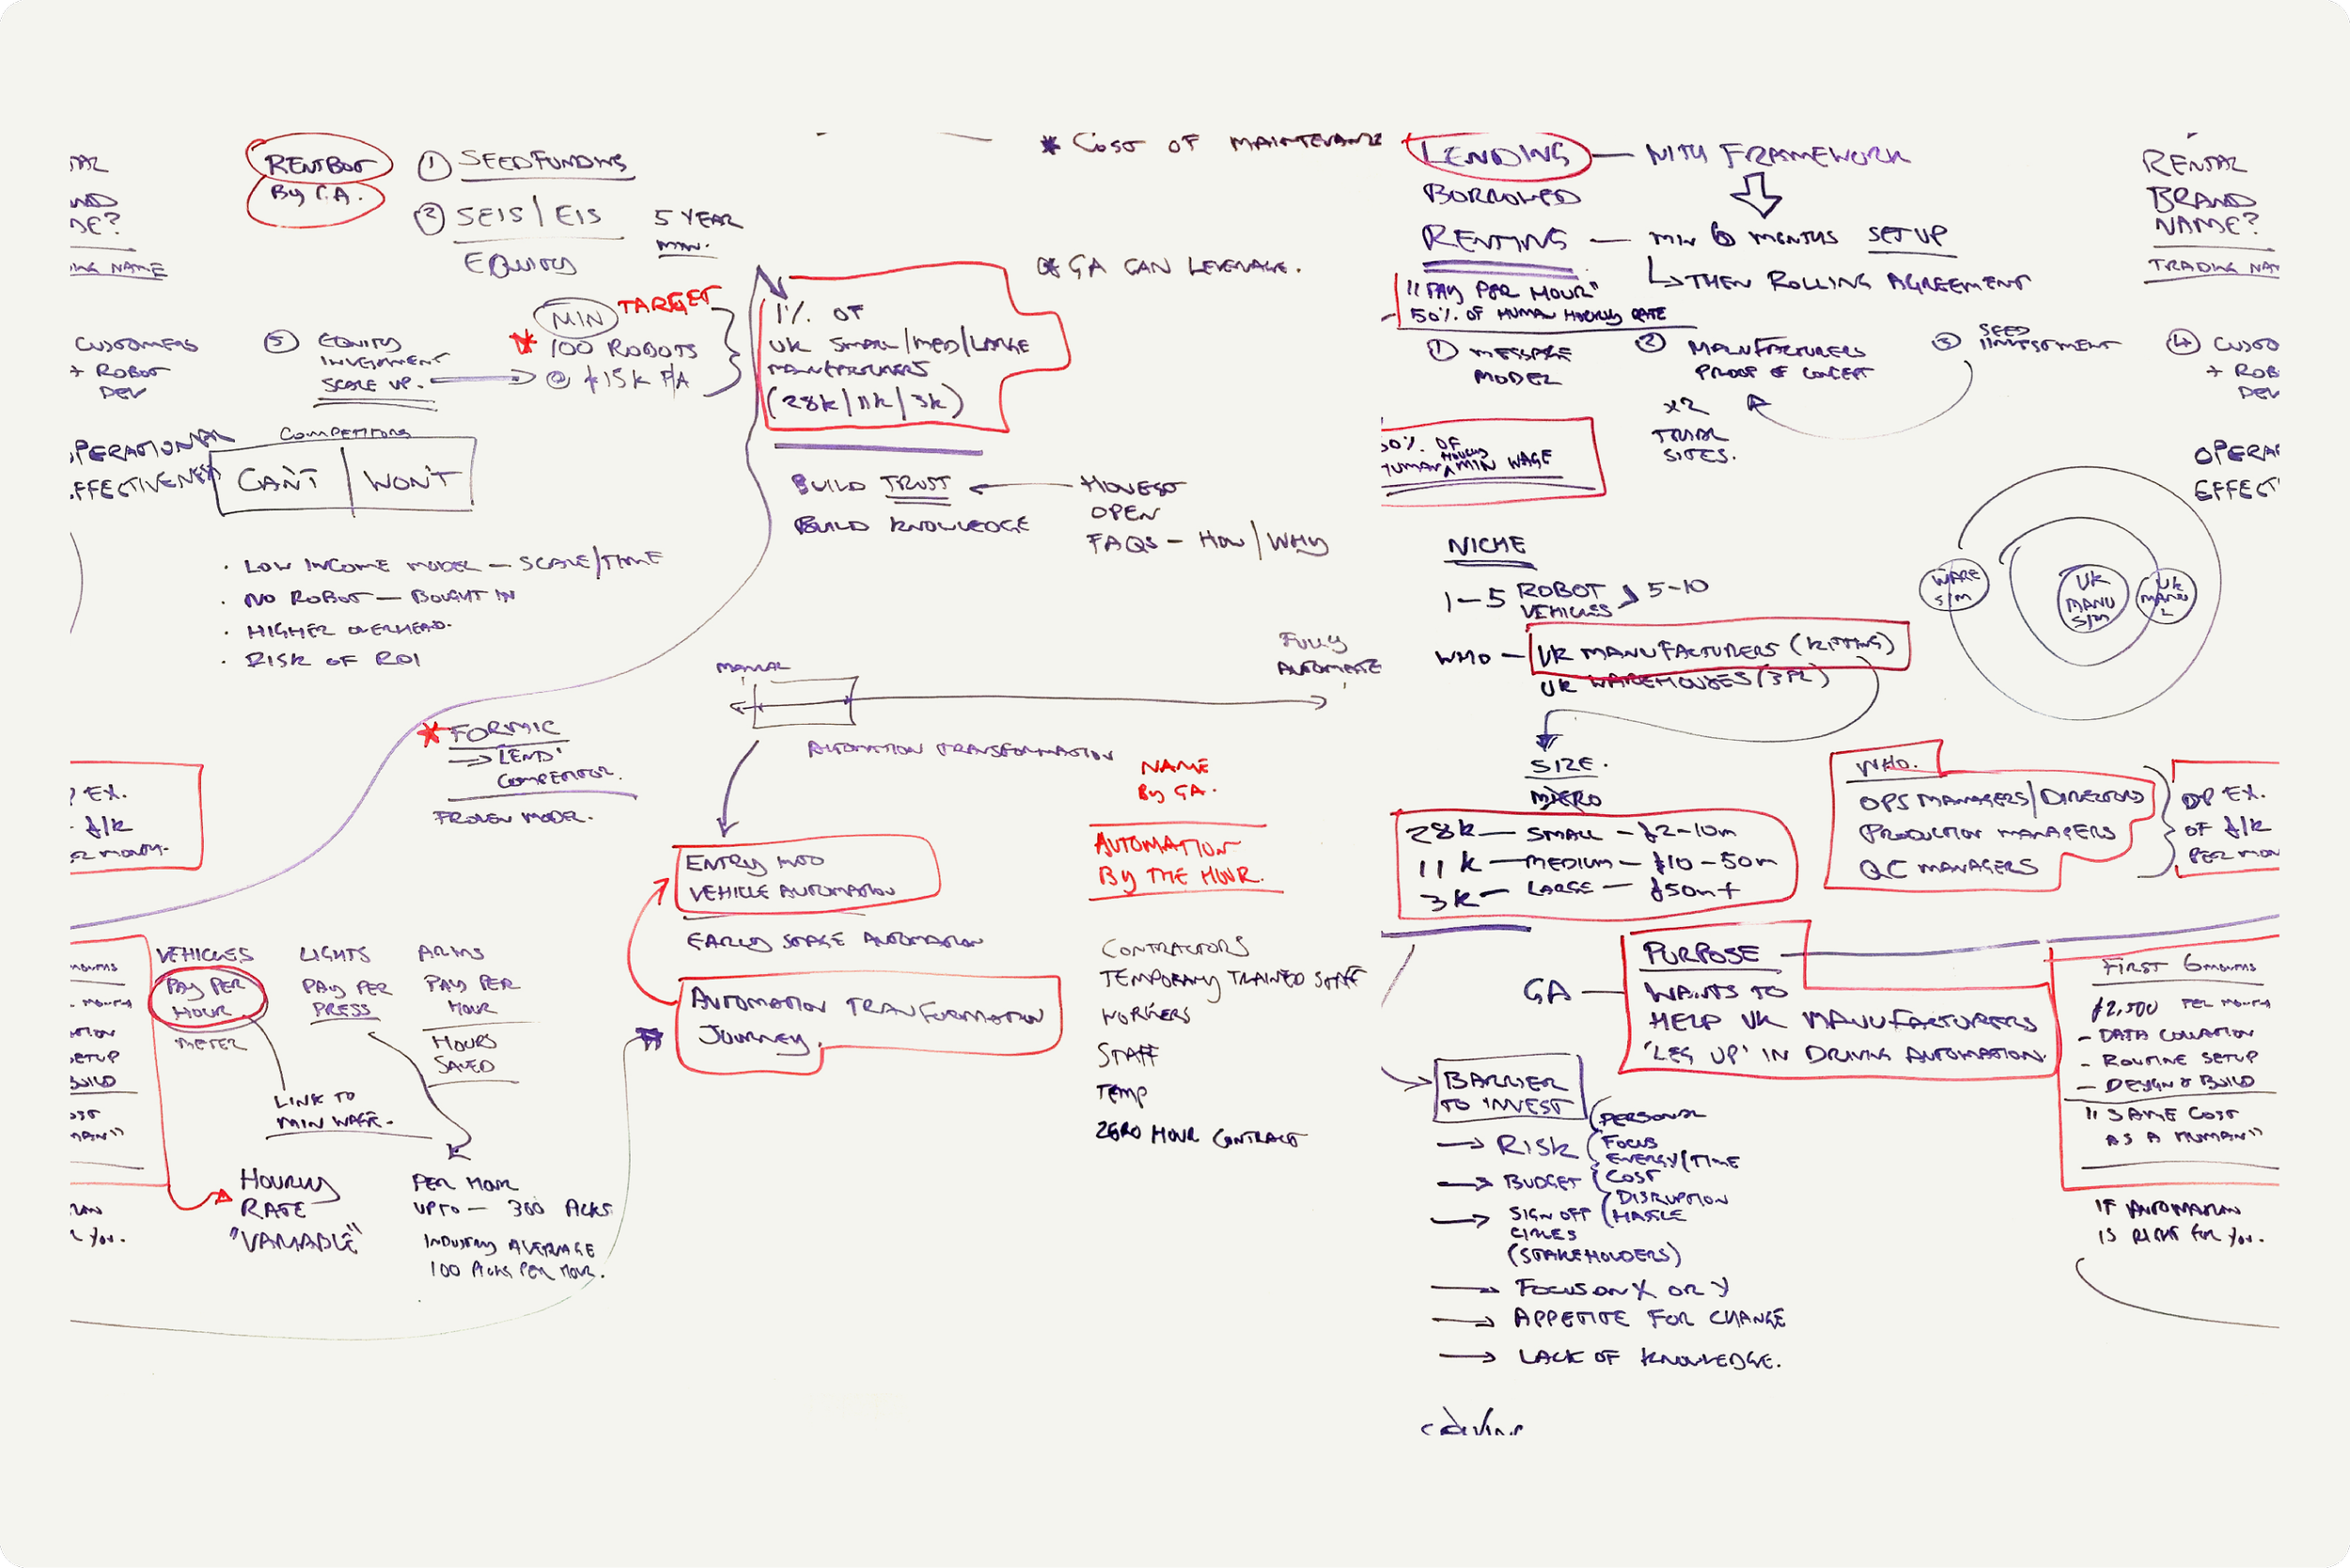 RENTBOT
By G.A.
① SEEDFUNDING
② SEIS/EIS
EQUITY
5 YEAR
MIN.
* COST OF MAINTENANCE
GA CAN LEVERAGE.
NAME?
CUSTOMERS
+ ROBOT
DEV
⑤ EQUITY
INVESTMENT
SCALE UP.
MIN TARGET
* 100 ROBOTS
@ £15K P/A
1% OF
UK SMALL/MED/LARGE
MANUFACTURERS
(28K/11K/3K)
OPERATIONAL
EFFECTIVENESS
COMPETITORS
CAN'T WON'T
BUILD TRUST
BUILD KNOWLEDGE
HONEST
OPEN
FAQS - HOW/WHY
· LOW INCOME MODEL - SCALE/TIME
· NO ROBOT - BOUGHT IN
· HIGHER OVERHEAD.
· RISK OF ROI
MANUAL
FULLY
AUTOMATE
AUTOMATION TRANSFORMATION
* FORMIC
→ 'LEND'
COMPETITOR.
PROVEN MODEL.
NAME
By GA.
AUTOMATION
By THE HOUR.
ENTRY
VEHICLE AUTOMATION
EARLY STAGE AUTOMATION
AUTOMATION TRANSFORMATION
JOURNEY.
CONTRACTORS
TEMPORARY TRAINED STAFF
WORKERS
STAFF
TEMP
ZERO HOUR CONTRACT
VEHICLES
PAY PER
HOUR
METER
LIGHTS
PAY PER
PRESS
ARMS
PAY PER
HOUR
HOURS
SAVED
LINK TO
MIN WAGE.
HOURLY
RATE
"VARIABLE"
PER HOUR
UP TO - 300 PICKS
INDUSTRY AVERAGE
100 PICKS PER HOUR.
LENDING - WITH FRAMEWORK
BORROWED
RENTING - MIN 6 MONTHS SETUP
THEN ROLLING AGREEMENT
"PAY PER HOUR"
50% OF HUMAN HOURLY RATE
① MESSAGE
MODEL
② MANUFACTURERS
PROOF OF CONCEPT
x2
TRIAL
SITES.
③ SEED
INVESTMENT
④ CUSTO
+ ROB
DEV
RENTAL
BRAND
NAME?
TRADING NA
50% OF
HUMAN HOURLY MIN WAGE
NICHE
1-5 ROBOT
VEHICLES 5-10
WHO - UK MANUFACTURERS (KITTING)
UK WAREHOUSES (3PL)
OPERA
EFFECT
WARE
S/M
UK
MANU
S/M
UK
MANU
L
SIZE.
MICRO
28K - SMALL - £2-10m
11K - MEDIUM - £10-50m
3K - LARGE - £50m+
WHO.
OPS MANAGERS/DIRECTORS
PRODUCTION MANAGERS
QC MANAGERS
OP EX.
OF £/K
PER MON
GA - PURPOSE
WANTS TO
HELP UK MANUFACTURERS
'LEG UP' IN DRIVING AUTOMATION.
FIRST 6 MONTHS
£2,500 PER MONTH
- DATA COLLATION
- ROUTINE SETUP
- DESIGN & BUILD
"SAME COST
AS A HUMAN"
IF AUTOMATION
IS RIGHT FOR YOU.
BARRIER
TO INVEST
→ RISK
→ BUDGET
→ SIGN OFF
(STAKEHOLDERS)
PERSONAL
FOCUS
ENERGY/TIME
COST
DISRUPTION
HASSLE
→ FOCUS ON X OR Y
→ APPETITE FOR CHANGE
→ LACK OF KNOWLEDGE.